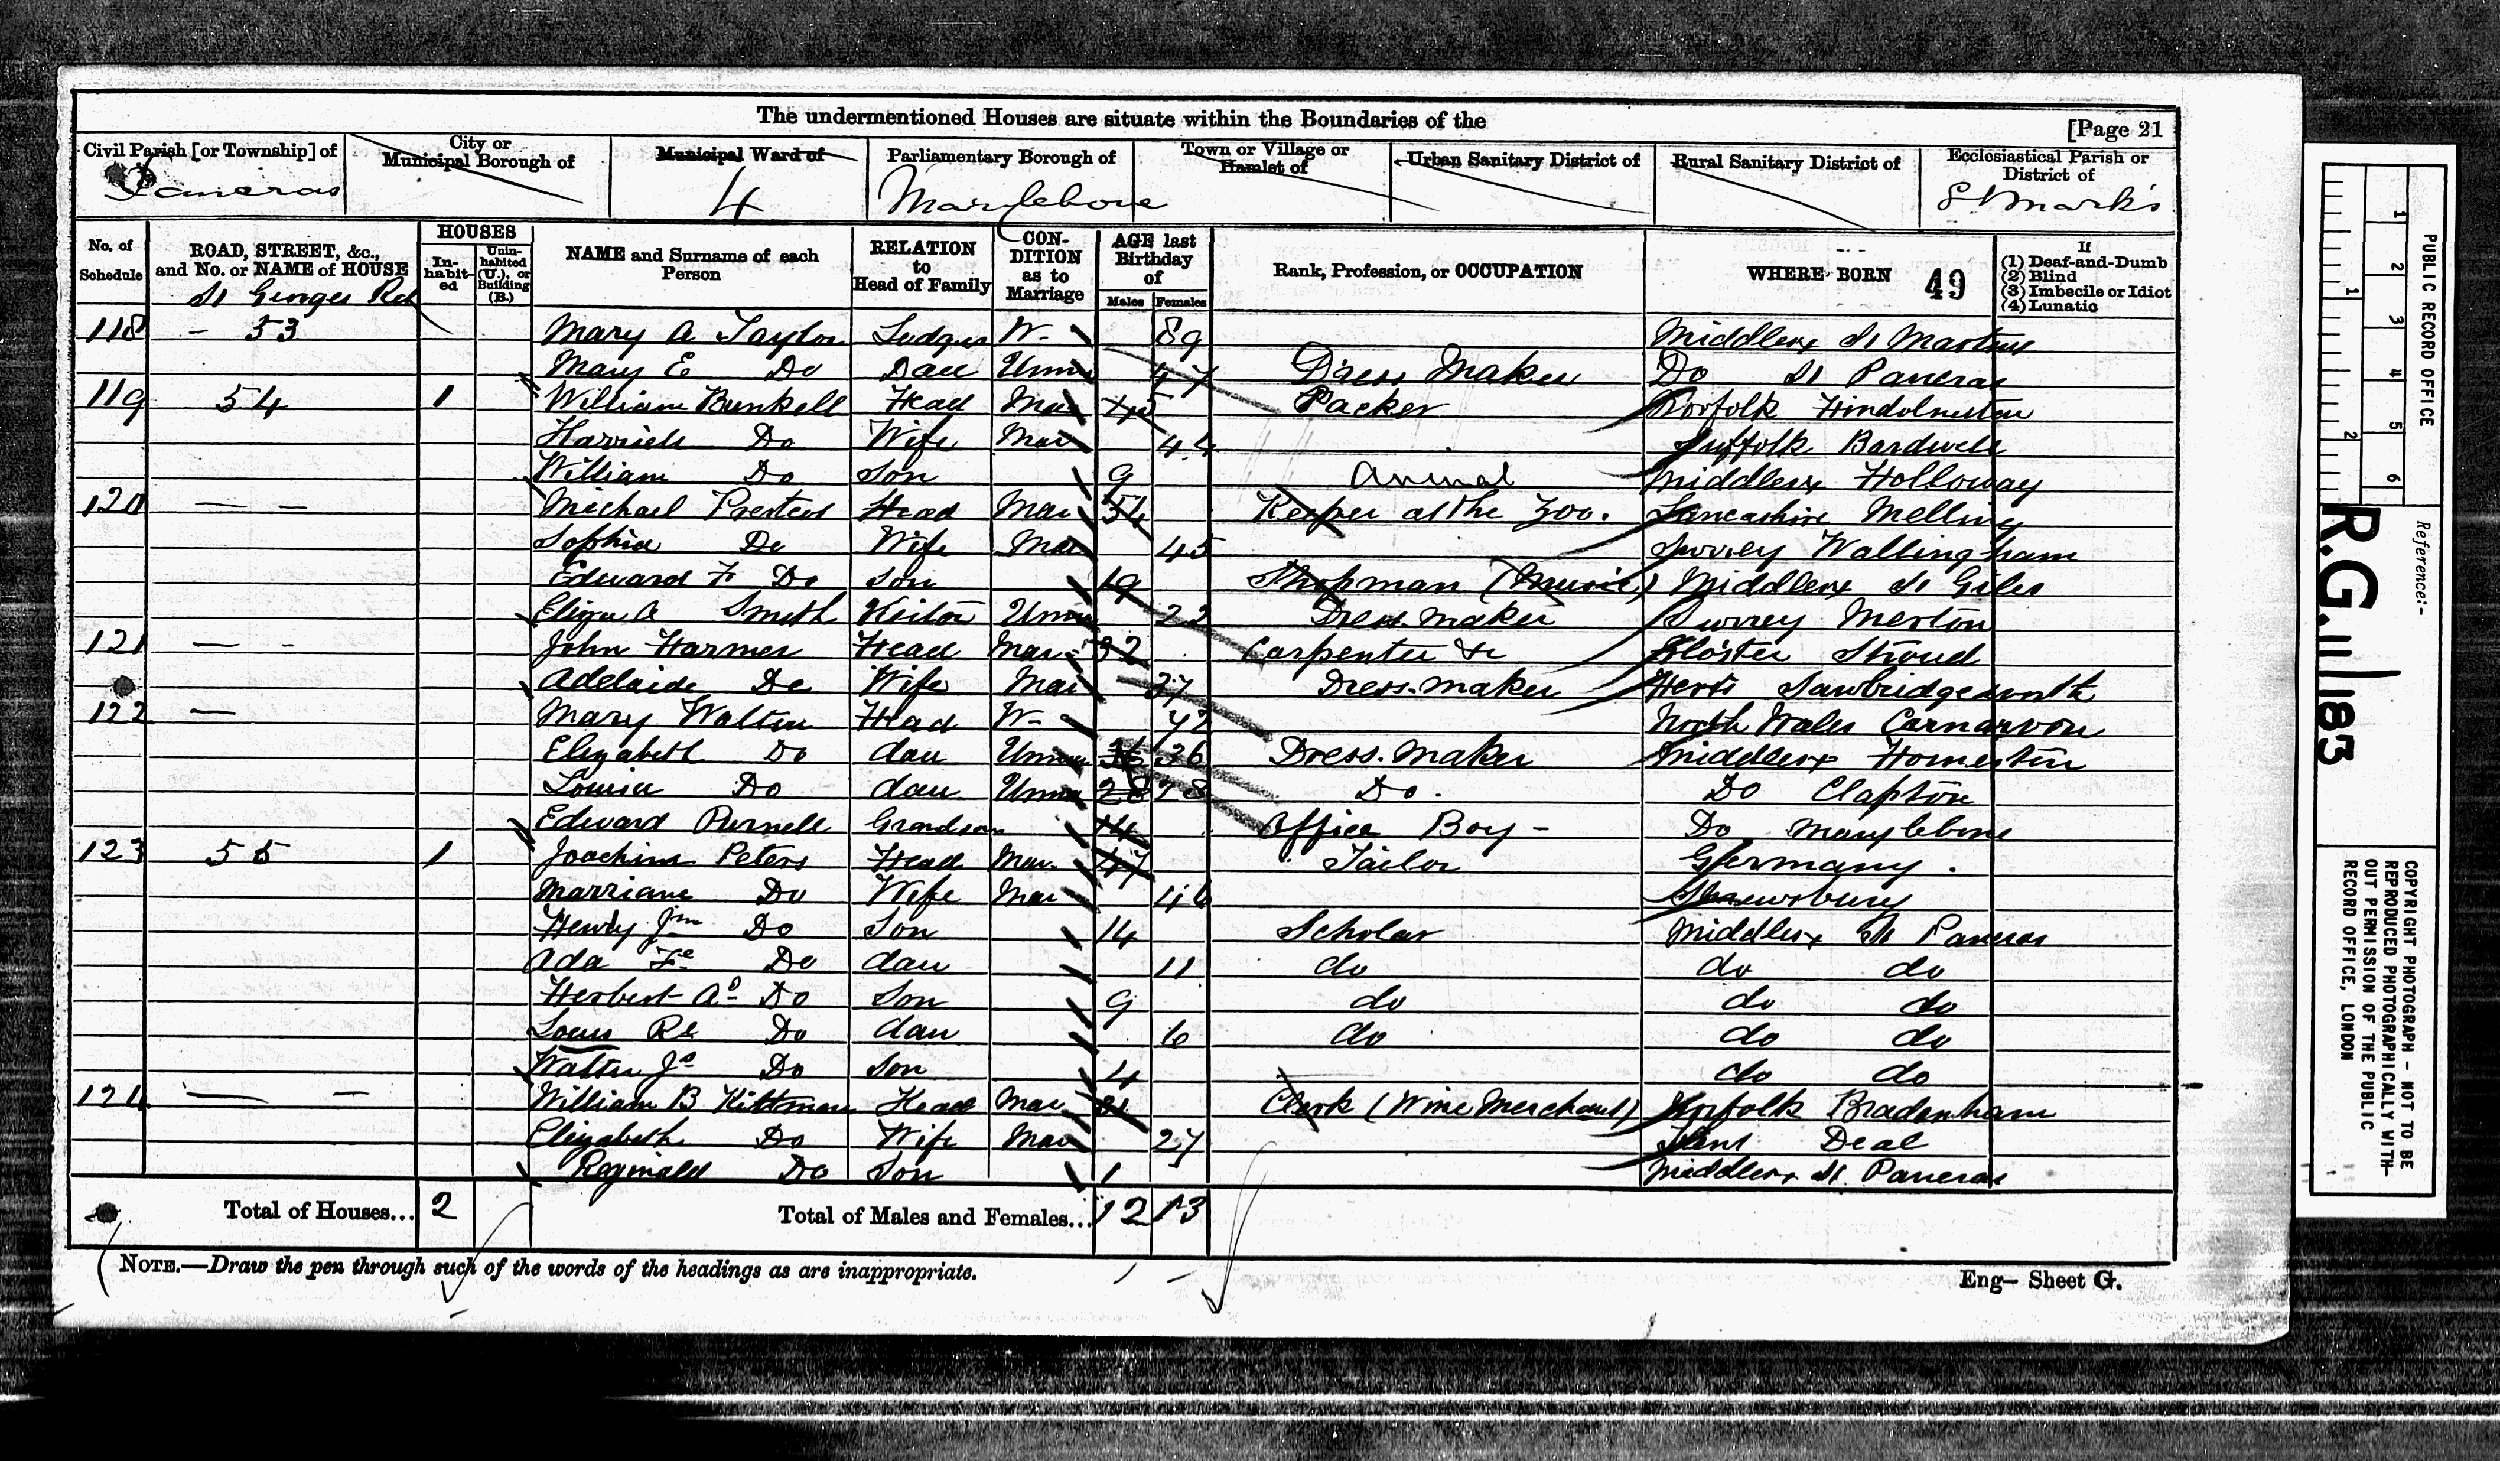 The undermentioned Houses are situate within the Boundaries of the
[Page 21
Civil Parish [or Township] of
City or Municipal Borough of
Municipal Ward of
Parliamentary Borough of
Town or Village or Hamlet of
Urban Sanitary District of
Rural Sanitary District of
Ecclesiastical Parish or District of
Pancras 4 Marylebone St Mark's
No. of Schedule
ROAD, STREET, &c., and No. or NAME of HOUSE
HOUSES
Inhabited
Uninhabited (U.), or Building (B.)
NAME and Surname of each Person
RELATION to Head of Family
CONDITION as to Marriage
AGE last Birthday of
Males Females
Rank, Profession, or OCCUPATION
WHERE BORN
49
If
(1) Deaf-and-Dumb
(2) Blind
(3) Imbecile or Idiot
(4) Lunatic
St Georges Rd
118 - 53 Mary A Taylor Lodger W- 89 Middlesex St Martins
Mary E Do Dau Unm 47 Dress Maker Do St Pancras
119 54 1 William Bunkell Head Mar 45 Packer Norfolk Hindolveston
Harriett Do Wife Mar 44 Suffolk Bardwell
William Do Son 9 Middlesex Holloway
Animal
120 — - Michael Head Mar 54 Keeper at the Zoo. Lancashire Melling
Sophia Do Wife Mar 45 Surrey Wallingham
Edward F Do Son 19 Shopman (Music) Middlesex St Giles
Eliza A Smith Visitor Unm 22 Dress Maker Surrey Merton
121 — - John Harmer Head Mar 32 Carpenter &c Gloster Stroud
Adelaide Do Wife Mar 37 Dress-maker Herts Sawbridgeworth
122 — Mary Walten Head W- 72 North Wales Carnarvon
Elizabeth Do dau Unm 36 36 Dress-Maker Middlesex Homerton
Louisa Do dau Unm 28 28 Do. Do Clapton
Edward Purnell Grandson 14 Office Boy - Do Marylebone
123 55 1 Joachim Peters Head Mar. 47 Tailor Germany.
Marriane Do Wife Mar 46 Shrewsbury
Henry Jm Do Son 14 Scholar Middlesex St Pancras
Ada Fe Do dau 11 do do do
Herbert Ao Do Son 9 do do do
Louis Re Do dau 6 do do do
Walter Js Do Son 4 do do
124 — - William B Kittmare Head Mar 31 Clerk (Wine Merchant) Norfolk Bradenham
Elizabeth Do Wife Mar 27 Kent Deal
Reginald Do Son 1 Middlesex St Pancras
Total of Houses... 2
Total of Males and Females... 12 13
NOTE.—Draw the pen through such of the words of the headings as are inappropriate.
Eng— Sheet G.
PUBLIC RECORD OFFICE
1 2 3 4 5 6
1 2
Reference:-
R.G. 11/183
COPYRIGHT PHOTOGRAPH - NOT TO BE
REPRODUCED PHOTOGRAPHICALLY WITH-
OUT PERMISSION OF THE PUBLIC
RECORD OFFICE, LONDON